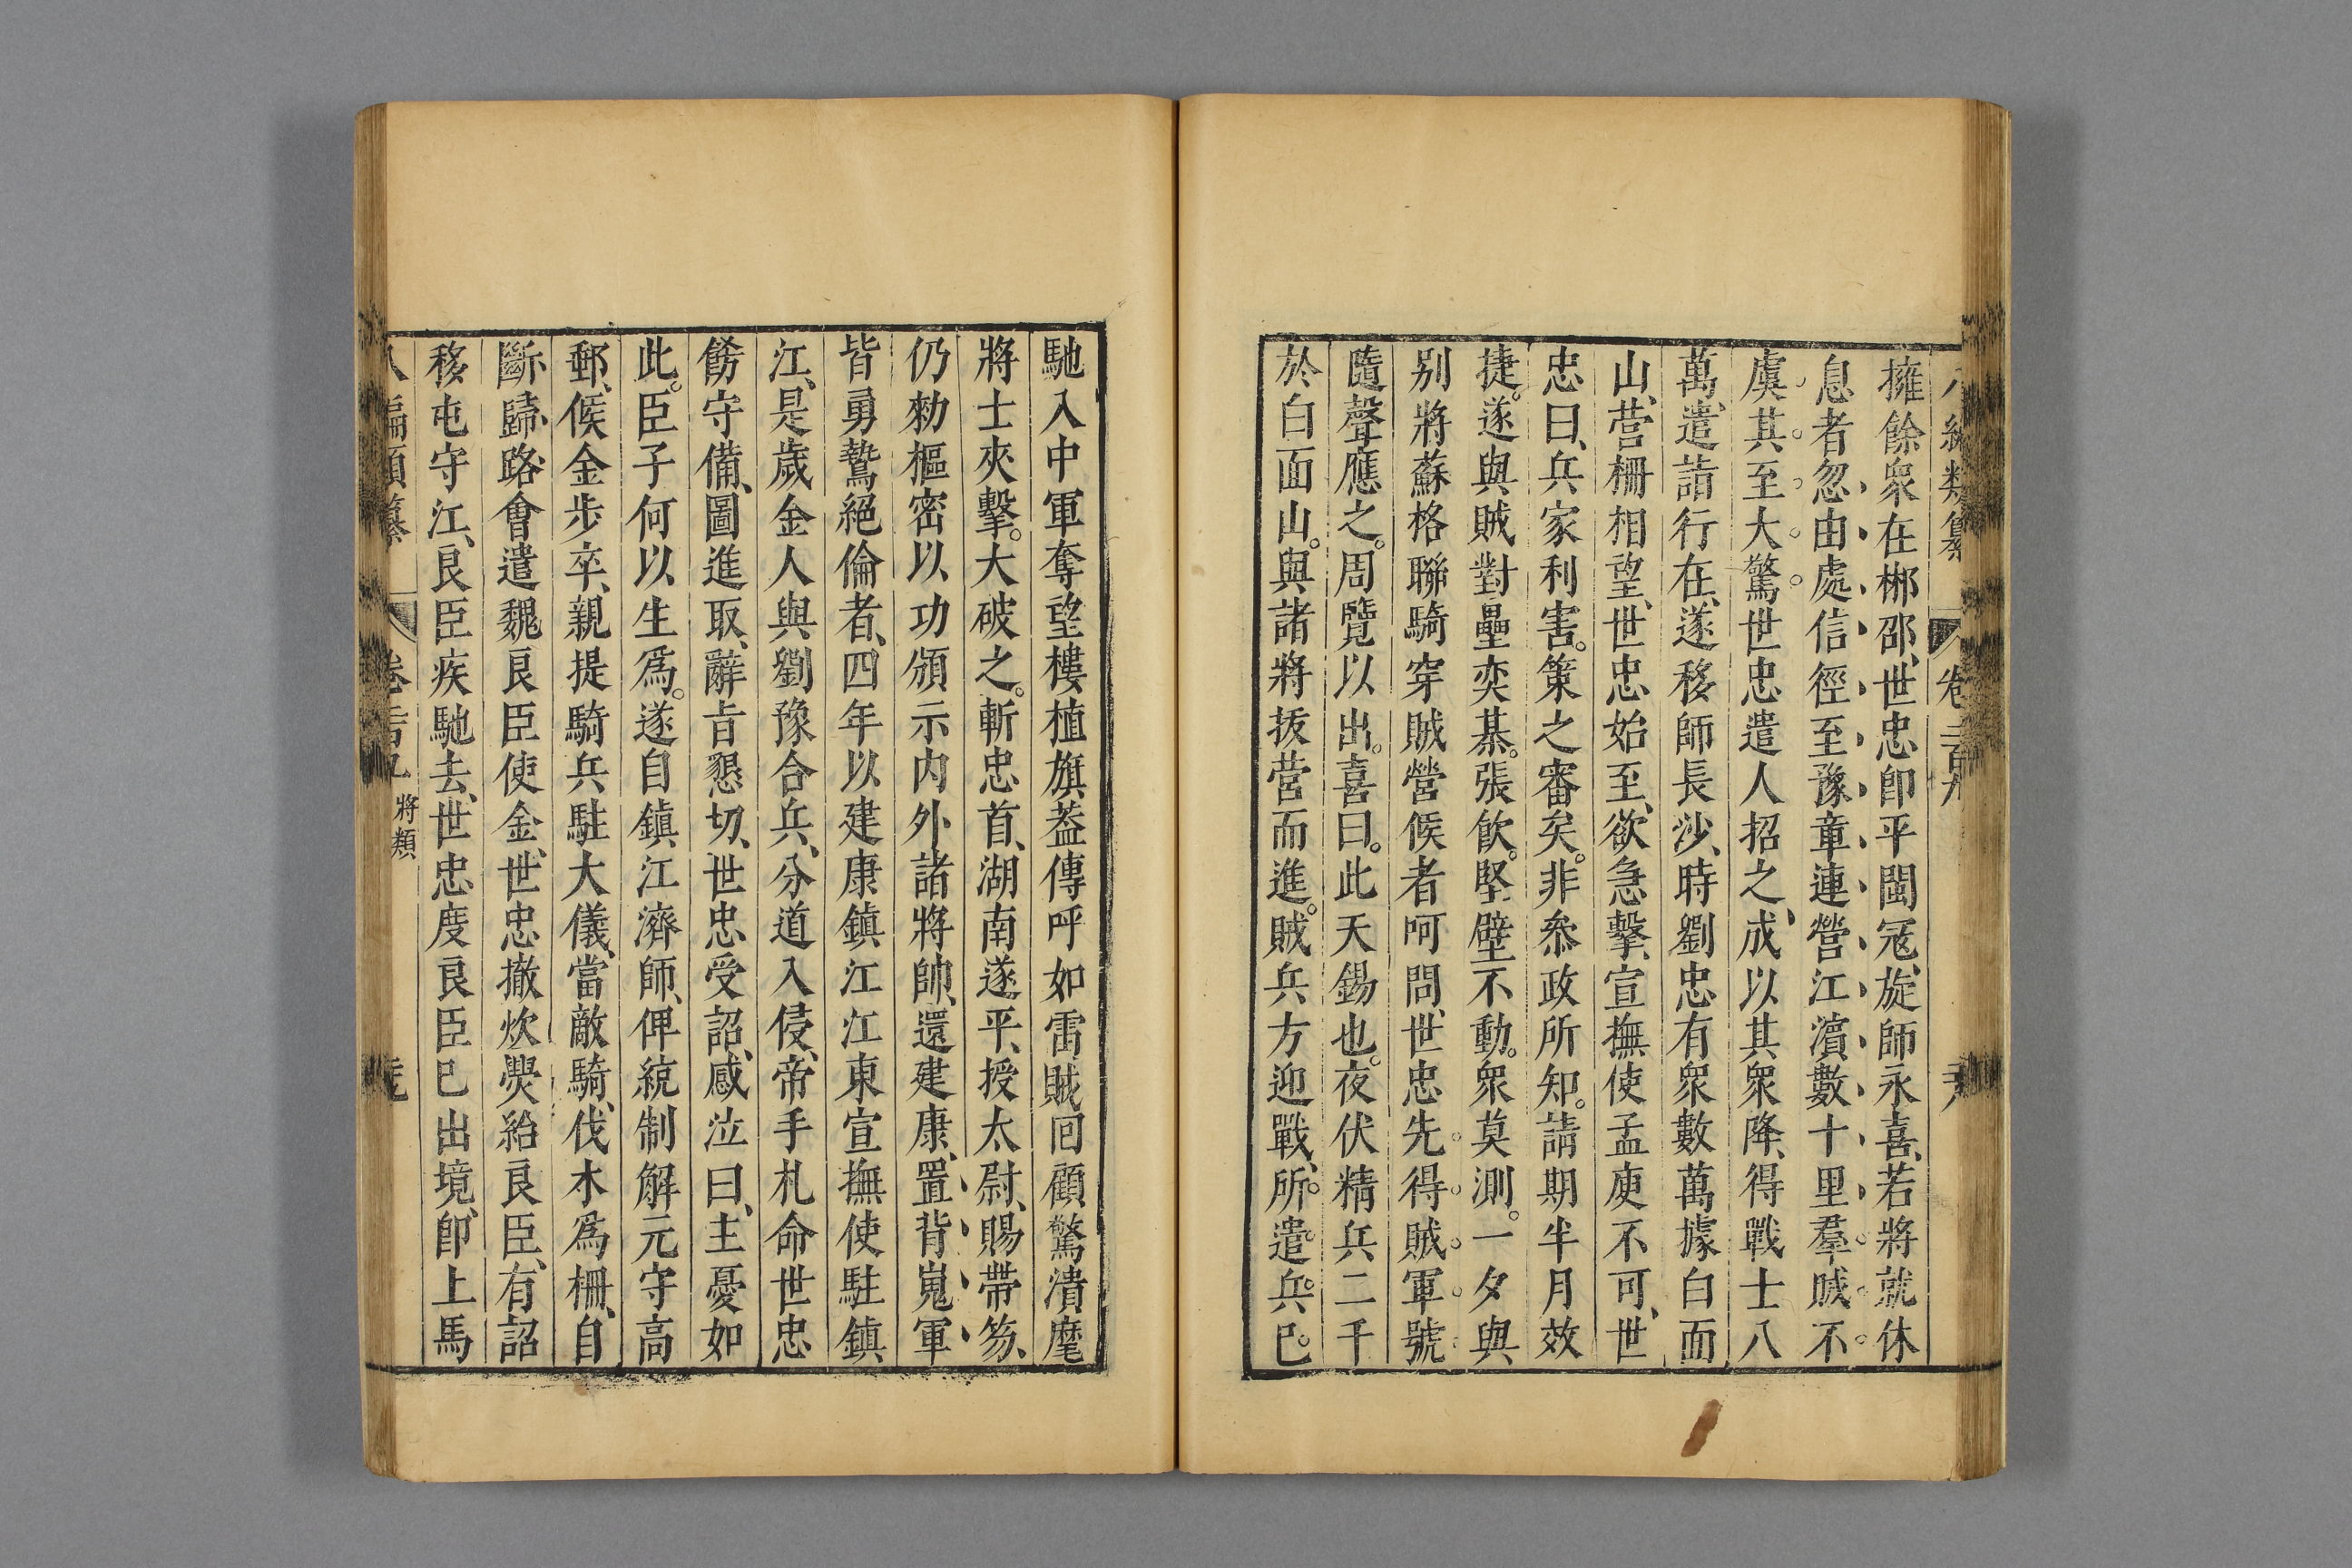 擁餘衆在郴邵、世忠卽平閩冦、旋師永喜、若將就休
息者忽由處信徑至豫章連營江濵數十里羣賊不
虞其至大驚世忠遣人招之、成以其衆降、得戰士八
萬、遣詣行在、遂移師長沙、時劉忠有衆數萬據白面
山、营柵相望、世忠始至、欲急擊、宣撫使孟庾不可、世
忠曰、兵家利害。策之審矣。非叅政所知。請期半月效
捷。遂與賊對壘奕棊。張飲。堅壁不動。衆莫測。一夕與
别將蘇格聯騎穿賊營候者呵問、世忠先得賊軍號
隨聲應之。周覽以出。喜曰。此天錫也。夜伏精兵二千
於白面山。與諸將拔营而進。賊兵方迎戰、所遣兵已
八編類纂 卷二百九
馳入中軍奪望樓植旗葢傳呼如雷賊囘顧驚潰麾
將士夾擊。大破之。斬忠首、湖南遂平、授太尉、賜帶笏、
仍勑樞密以功頒示内外諸將帥、還建康、置背嵬軍
皆勇鷙絕倫者、四年以建康鎮江江東宣撫使駐鎮
江、是歲金人與劉豫合兵、分道入侵、帝手札命世忠
餝守備、圖進取、辭㫖懇切、世忠受詔、感泣曰、主憂如
此。臣子何以生爲。遂自鎮江濟師、俾統制解元守高
郵、候金步卒、親提騎兵駐大儀、當敵騎、伐木爲柵、自
斷歸路會遣魏良臣使金、世忠撤炊㸑紿良臣、有詔
移屯守江、良臣疾馳去、世忠度良臣已出境、卽上馬
八編類纂 卷二百九 將類